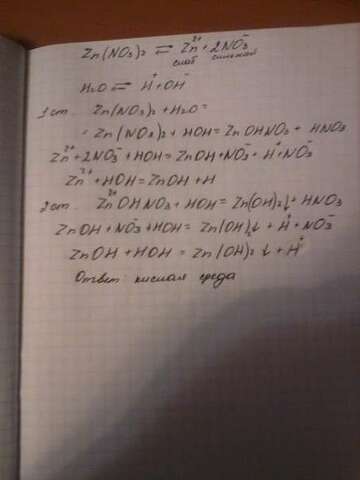 Zn(NO3)2 ⇄ Zn²⁺ + 2NO3⁻
слаб сильной
H2O ⇄ H⁺ + OH⁻
1 ст. Zn(NO3)2 + H2O =
= Zn(NO3)2 + HOH = ZnOHNO3 + HNO3
Zn²⁺ + 2NO3⁻ + HOH = ZnOH + NO3⁻ + H⁺ + NO3⁻
Zn²⁺ + HOH = ZnOH + H⁺
2 ст. ZnOHNO3 + HOH = Zn(OH)2↓ + HNO3
ZnOH + NO3⁻ + HOH = Zn(OH)2↓ + H⁺ + NO3⁻
ZnOH + HOH = Zn(OH)2↓ + H⁺
Ответ: кислая среда